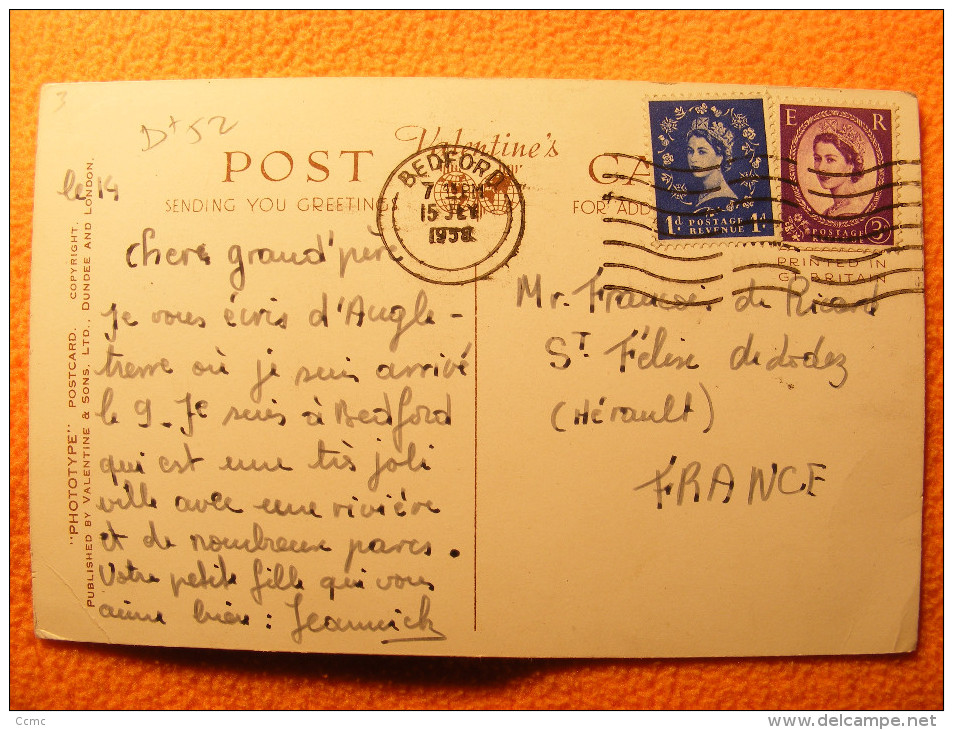 3
D+52
Valentine's
POST CA
SENDING YOU GREETINGS
FOR ADD
BEDFORD
15
1958
1d POSTAGE REVENUE 1d
E R
POSTAGE REVENUE 3d
PRINTED IN
GT BRITAIN
"PHOTOTYPE" POSTCARD. COPYRIGHT.
PUBLISHED BY VALENTINE & SONS, LTD., DUNDEE AND LONDON.
le 14
Cher grand'père
Je vous écris d'Angle-
terre où je suis arrivé
le 9. Je suis à Bedford
qui est une très joli
ville avec une rivière
et de nombreux parcs.
Votre petite fille qui vous
aime bien : Jeannick
Mr. Francois de Ricard
ST Félix de Lodez
(Hérault)
FRANCE
Ccmc
www.delcampe.net